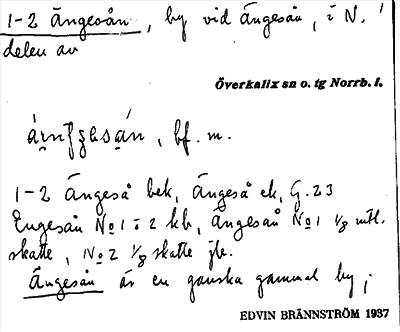 1-2 Ängesån, by vid Ängesån, i N.
delen av
Överkalix sn o. tg Norrb. l.
bf. m.
1-2 Ängeså bek, Ängeså ek, G. 23
Engesån No 1 i 2 kb, Ängesån No 1 1/8 mtl.
skatte, No 2 1/8 skatte jb.
Ängesån är en ganska gammal by;
EDVIN BRÄNNSTRÖM 1937